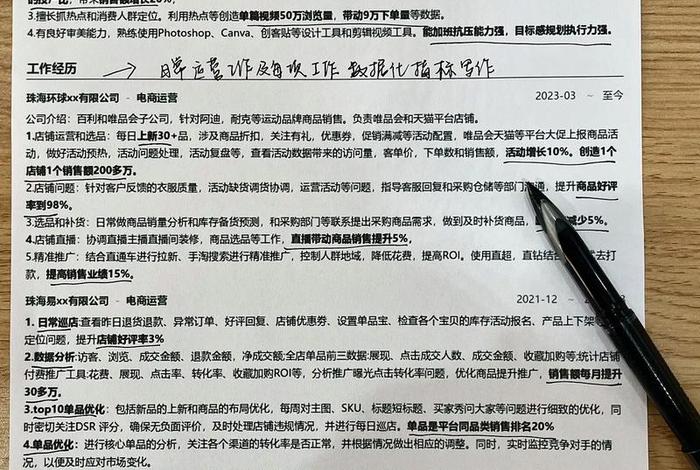 销售额增长20%,
3.擅长抓热点和消费人群定位。利用热点等创造单篇视频50万浏览量,带动9万下单量等数据。
4.有良好审美能力,熟练使用Photoshop、Canva、创客贴等设计工具和剪辑视频工具。能加班抗压能力强,目标感规划执行力强。
工作经历 → 日常运营工作及每次工作 数据化指标写作
珠海环球xx有限公司 - 电商运营 2023-03 ~ 至今
公司介绍:百利和唯品会子公司,针对阿迪,耐克等运动品牌商品销售。负责唯品会和天猫平台店铺。
1.店铺运营和选品:每日上新30+品,涉及商品折扣,关注有礼,优惠券,促销满减等活动配置,唯品会天猫等平台大促上报商品活
动,做好活动预热,活动问题处理,活动复盘等,查看活动数据带来的访问量,客单价,下单数和销售额,活动增长10%。创造1个
店铺1个销售额200多万。
2.店铺问题:针对客户反馈的衣服质量,活动缺货调货协调,运营活动等问题,指导客服回复和采购仓储等部门沟通,提升商品好评
率到98%。
3.选品和补货:日常做商品销量分析和库存备货预测,和采购部门等联系提出采购商品需求,做到及时补货商品,减少5%。
4.店铺直播:协调直播主播直播间装修,商品选品等工作,直播带动商品销售提升5%,
5.精准推广:结合直通车进行拉新、手淘搜索进行精准推广,控制人群地域,降低花费,提高ROI。使用直超,直钻结合 去打
款,提高销售业绩15%。
珠海易xx有限公司 - 电商运营 2021-12 ~
1. 日常巡店:查看昨日退货退款、异常订单、好评回复、店铺优惠券、设置单品宝、检查各个宝贝的库存活动报名、产品上下架等
定位问题,提升店铺好评率3%
2.数据分析:访客、浏览、成交金额、退款金额,净成交额;全店单品前三数据:展现、点击成交人数、成交金额、收藏加购等;统计店铺
付费推广工具:花费、展现、点击率、转化率、收藏加购ROI等,分析推广曝光点击转化率问题,优化商品提升推广,销售额每月提升
30多万。
3.top10单品优化:包括新品的上新和商品的布局优化,每周对主图、SKU、标题短标题、买家秀问大家等问题进行细致的优化,同
时密切关注DSR 评分,确保无负面评价,及时处理店铺违规情况,并进行每日巡店。单品是平台同品类销售排名20%
4.单品优化:进行核心单品的分析,关注各个渠道的转化率是否正常,并根据情况做出相应的调整。同时,实时监控竞争对手的情
况,以便及时应对市场变化。